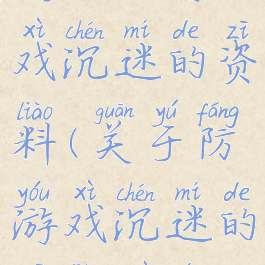 xì chén mí de zī
戏沉迷的资
liào guān yú fáng
料(关于防
yóu xì chén mí de
游戏沉迷的